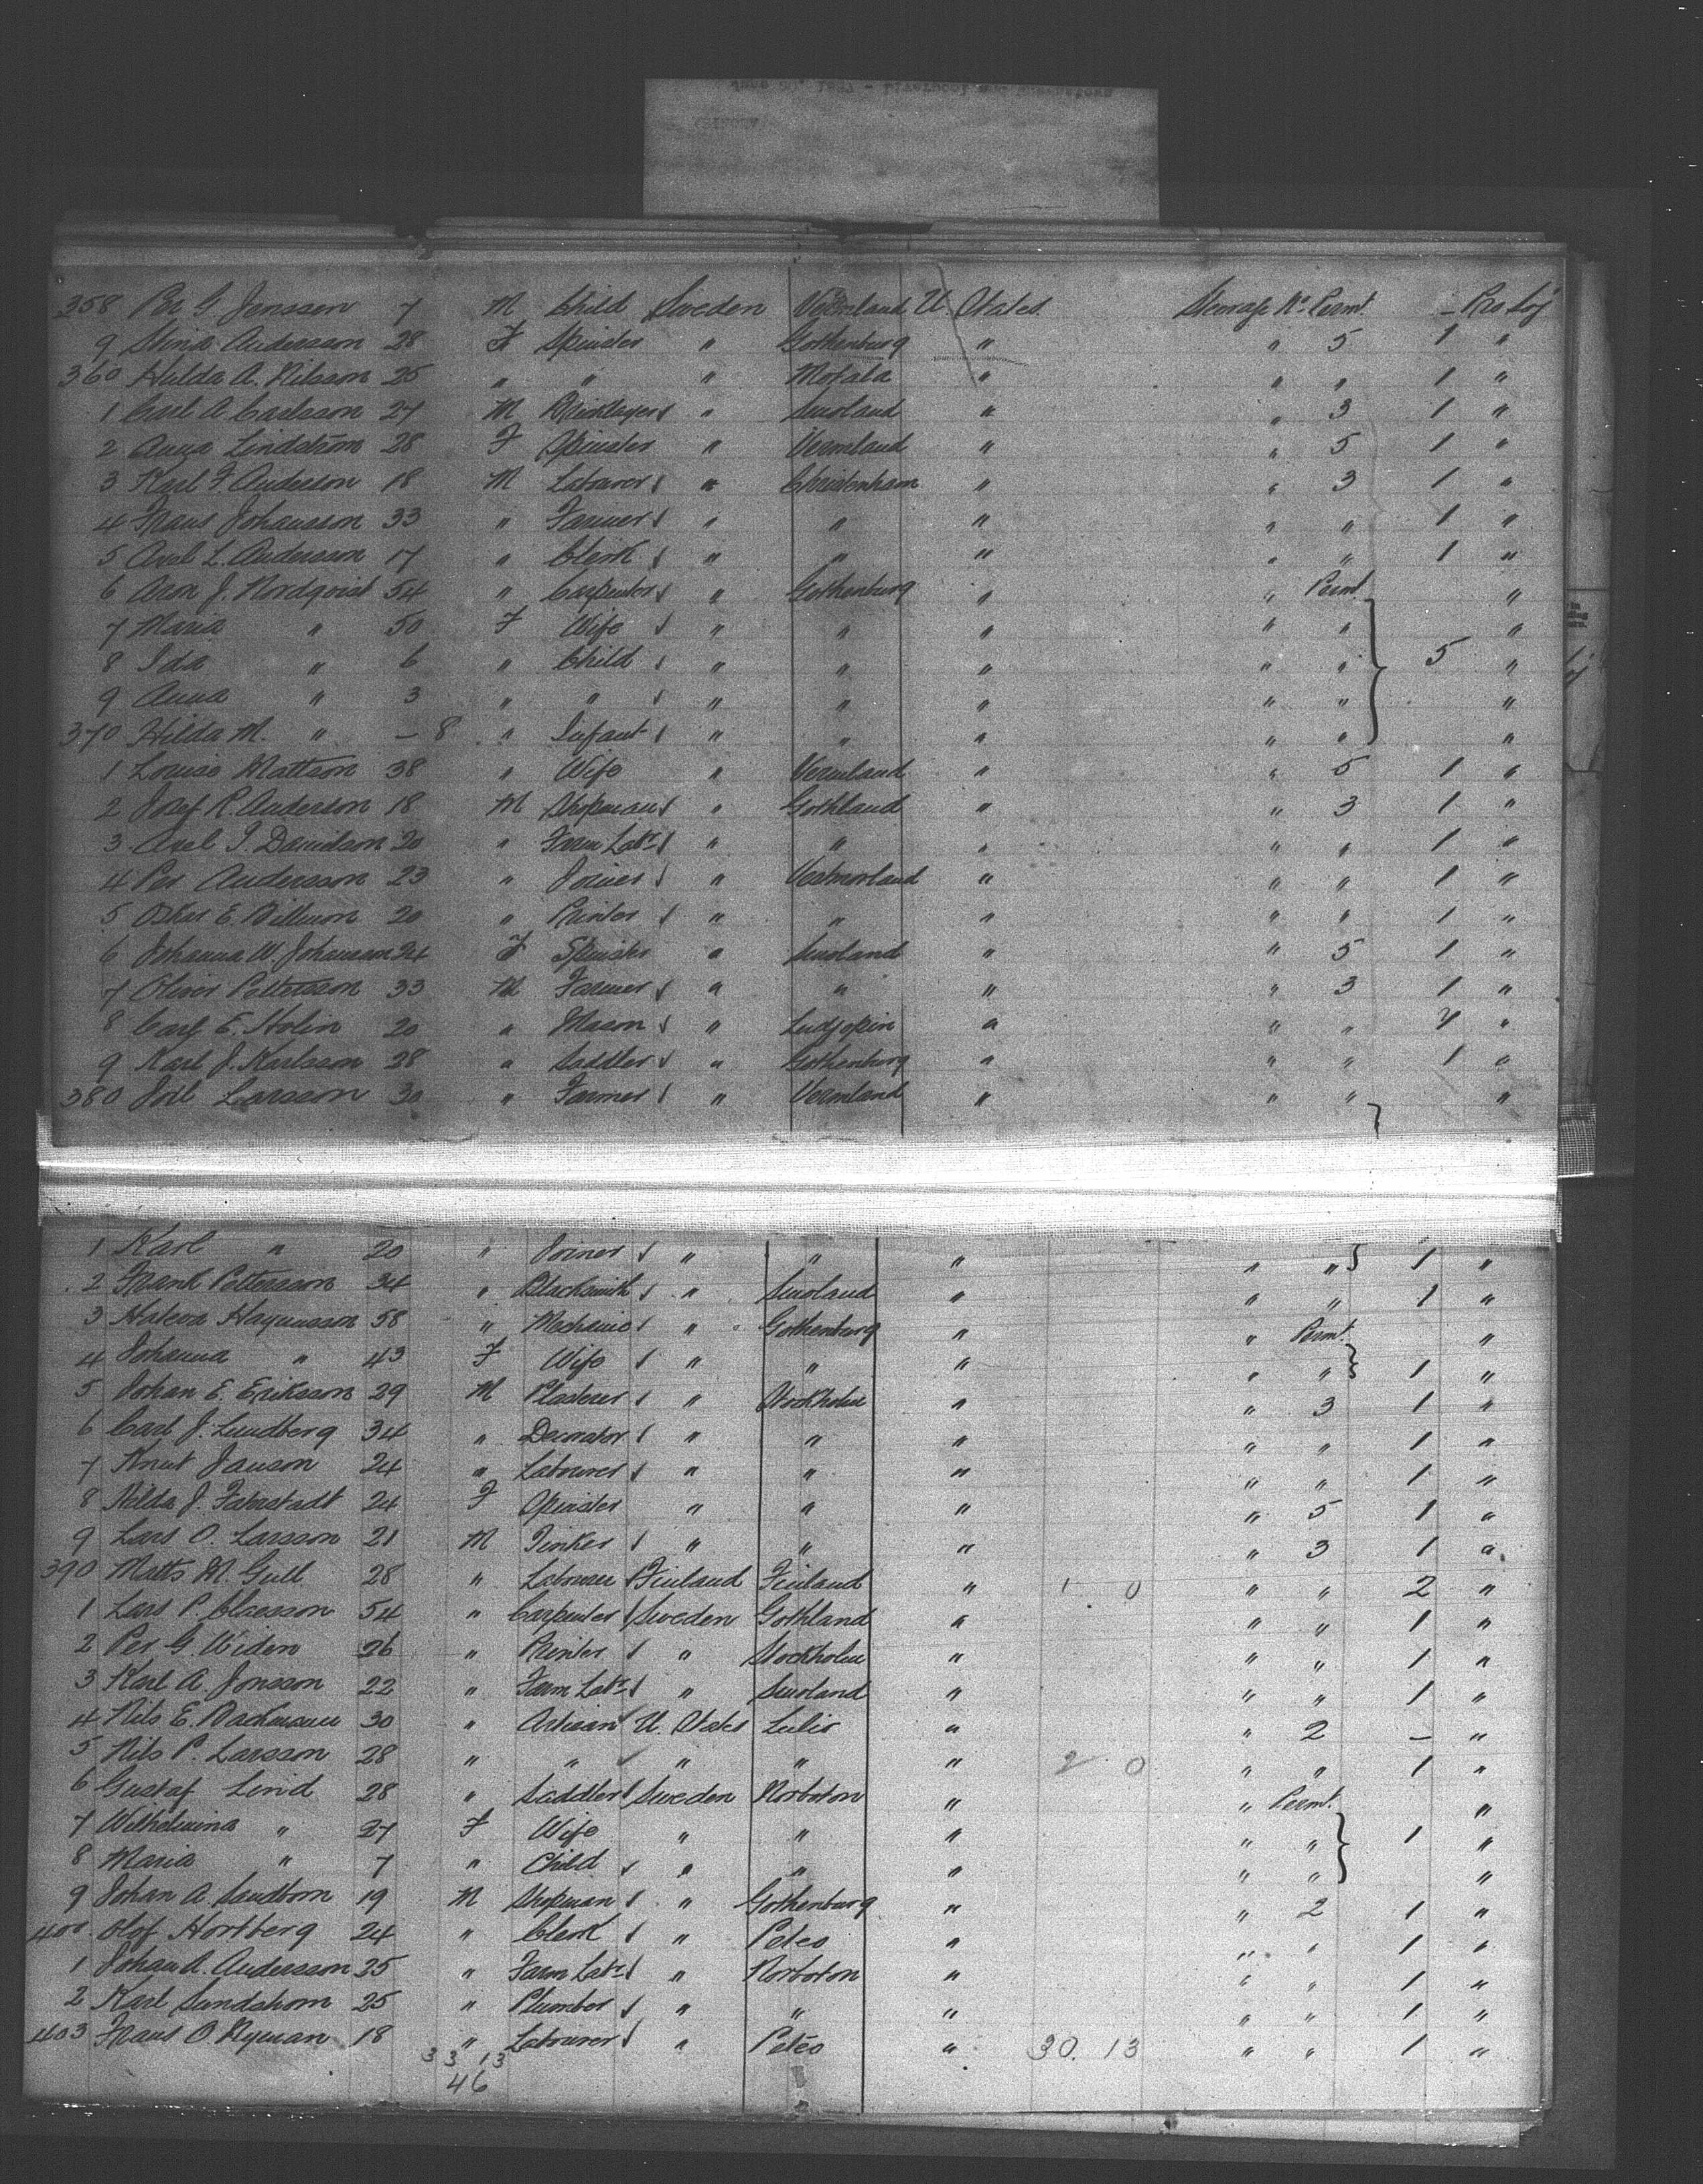 358 Per G Jonsson 7 M Child Sweden Vermland U. States. Steerage No. Permt. – Pro Soj
9 Stina Andersson 28 F Spinster " Gothenburg " " 5 1 "
360 Hulda A. Nilsson 25 " " " Motala " " " 1 "
1 Carl A. Carlsson 27 M Bricklayer " Smoland " " 3 1 "
2 Anna Lindström 28 F Spinster " Vermland " " 5 1 "
3 Karl F. Anderson 18 M Labourer " Christenham " " 3 1 "
4 Frans Johansson 33 " Farmer " " " " " 1 "
5 Axel L. Andersson 17 " Clerk " " " " " 1 "
6 Aron J. Nordqvist 54 " Carpenter " Gothenburg " " Permt "
7 Maria " 50 F Wife " " " " " "
8 Ida " 6 " Child " " " " " 5 "
9 Anna " 3 " " " " " " " "
370 Hilda M. " – 8 " Infant " " " " " "
1 Louise Mattson 38 " Wife " Vermland " " 5 1 "
2 Josef R. Anderson 18 M Shopman " Gothland " " 3 1 "
3 Axel I. Davidson 20 " Farm Labr. " " " " " 1 "
4 Per Andersson 23 " Joiner " Vestmorland " " " 1 "
5 Oskar E. Billmon 20 " Printer " " " " " 1 "
6 Johanna W. Johansson 24 F Spinster " Smoland " " 5 1 "
7 Oliver Pettersson 33 M Farmer " " " " 3 1 "
8 Carl E. Holin 20 " Mason " Ludjopin " " " "
9 Karl J. Karlsson 28 " Saddler " Gothenburg " " " 1 "
380 Joel Larsson 30 " Farmer " Vermland " " " "
1 Karl " 20 " Joiner " " " " " 1 "
2 Frank Pettersson 34 " Blacksmith " Smoland " " " 1 "
3 Hagnusson 58 " Mechanic " Gothenburg " " Permt. "
4 Johanna " 43 F Wife " " " " " 1 "
5 Johan E. Eriksson 29 M Plasterer " Stockholm " " 3 1 "
6 Carl J. Lundberg 34 " Decorator " " " " " 1 "
7 Knut Janson 24 " Labourer " " " " " 1 "
8 Hilda J. Fahrstadt 24 F Spinster " " " " 5 1 "
9 Lars O. Larsson 21 M Tinker " " " " 3 1 "
390 Matts M. Gull 28 " Labourer Finland Finland " 1 0 " " 2 "
1 Lars P. Claesson 54 " Carpenter Sweden Gothland " " " 1 "
2 Per G. Widen 26 " Printer " Stockholm " " " 1 "
3 Karl A. Jonsson 22 " Farm Labr. " Smoland " " " 1 "
4 Nils E. Backmann 30 " Artisan U. States Lulio " " 2 – "
5 Nils P. Larsson 28 " " " " " 2 0 " " 1 "
6 Gustaf Lind 28 " Saddler Sweden Norboton " " Permt. "
7 Wilhelmina " 27 F Wife " " " " " 1 "
8 Maria " 7 " Child " " " " " "
9 Johan A. Sandborn 19 M Shopman " Gothenburg " " 2 1 "
400 Olof Hortberg 24 " Clerk " Peteo " " " 1 "
1 Johan A. Andersson 25 " Farm Labr. " Norboton " " " 1 "
2 Karl Sundshom 25 " Plumber " " " " " 1 "
403 Frans O. Nyman 18 " Labourer " Peteo " 30. 13 " " 1 "
33 13
46